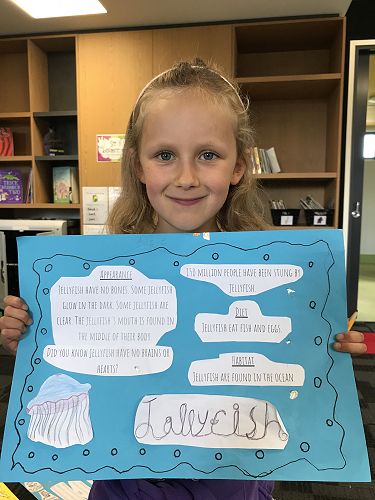 Appearance
Jellyfish have no bones. Some jellyfish
glow in the dark. Some jellyfish are
clear. The jellyfish's mouth is found in
the middle of their body.
Did you know jellyfish have no brains or
hearts?
150 million people have been stung by
jellyfish.
Diet
Jellyfish eat fish and eggs.
Habitat
Jellyfish are found in the ocean.
Jallyfish